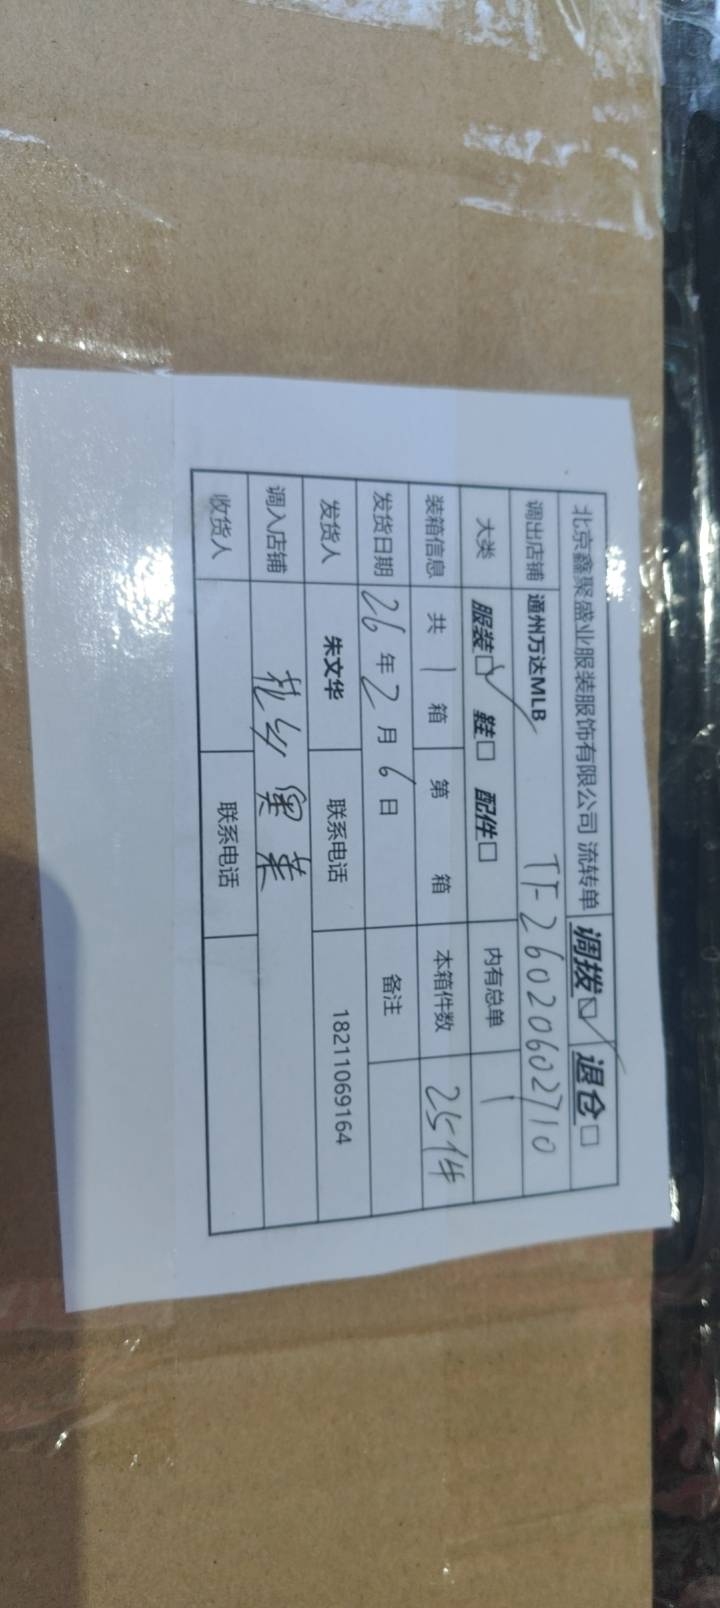 北京鑫聚盛业服装服饰有限公司 流转单 调拨☑ 退仓□
调出店铺 通州万达MLB TF-26020602710
大类 服装☑ 鞋□ 配件□ 内有总单 1
装箱信息 共 1 箱 第 箱 本箱件数 25件
发货日期 26年2月6日 备注
发货人 朱文华 联系电话 18211069164
调入店铺 奥莱
收货人 联系电话